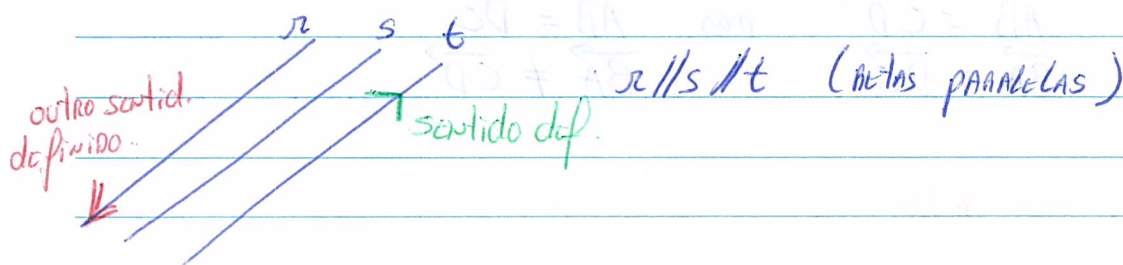 r s t
r//s//t (RETAS PARALELAS)
outro sentid.
definido.
sentido def.